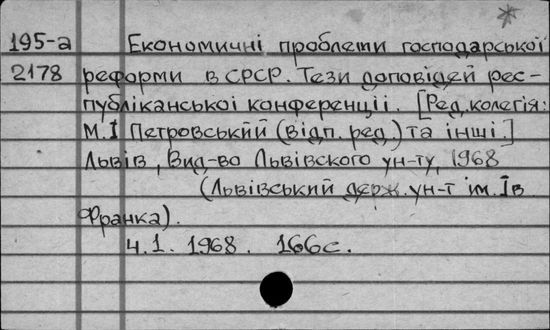 *
195-а Економичні проблеми господарської
2178 реформи в СРСР. Тези доповідей рес-
публіканської конференціі. [Ред.колегія:
М.І Петровський (відп. ред.) та інші.]
Львів, Вид-во Львівского ун-ту, 1968
(Львівський держ. ун-т ім. Ів
Франка).
ч.1. 1968. 166с.